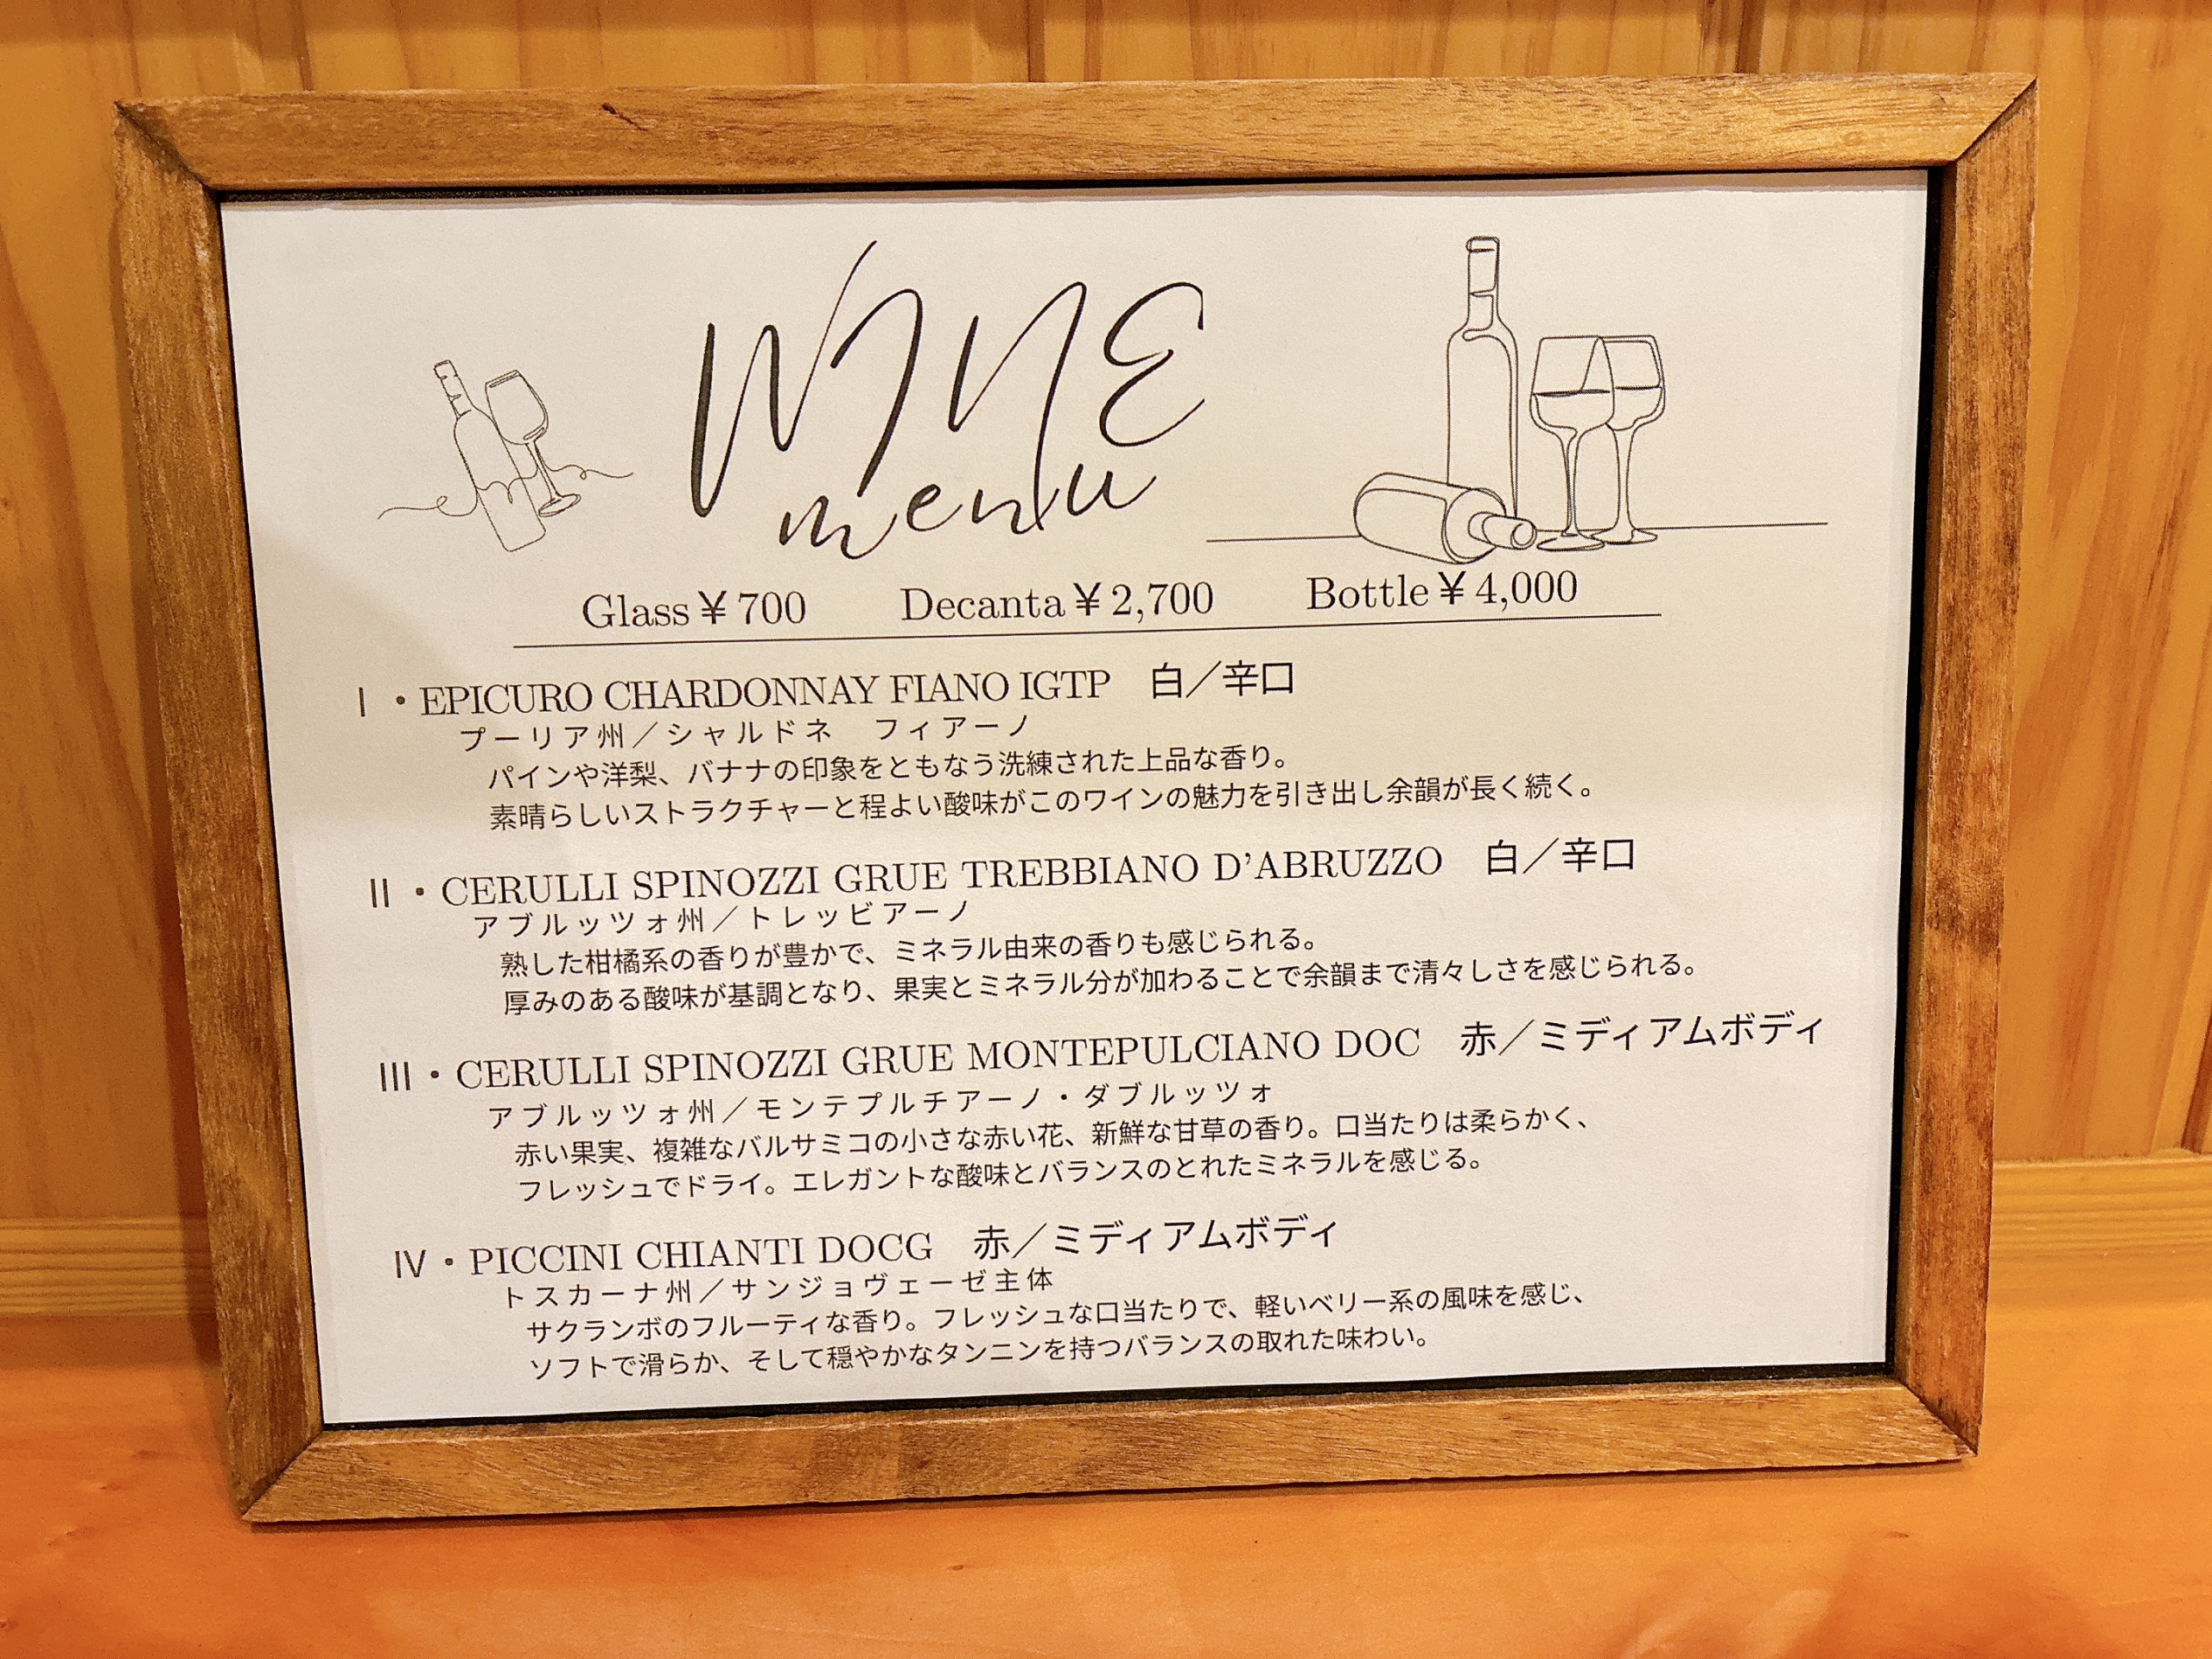 WINE
menu
Glass¥700 Decanta¥2,700 Bottle¥4,000
Ⅰ・EPICURO CHARDONNAY FIANO IGTP 白／辛口
プーリア州／シャルドネ フィアーノ
パインや洋梨、バナナの印象をともなう洗練された上品な香り。
素晴らしいストラクチャーと程よい酸味がこのワインの魅力を引き出し余韻が長く続く。
Ⅱ・CERULLI SPINOZZI GRUE TREBBIANO D’ABRUZZO 白／辛口
アブルッツォ州／トレッビアーノ
熟した柑橘系の香りが豊かで、ミネラル由来の香りも感じられる。
厚みのある酸味が基調となり、果実とミネラル分が加わることで余韻まで清々しさを感じられる。
Ⅲ・CERULLI SPINOZZI GRUE MONTEPULCIANO DOC 赤／ミディアムボディ
アブルッツォ州／モンテプルチアーノ・ダブルッツォ
赤い果実、複雑なバルサミコの小さな赤い花、新鮮な甘草の香り。口当たりは柔らかく、
フレッシュでドライ。エレガントな酸味とバランスのとれたミネラルを感じる。
Ⅳ・PICCINI CHIANTI DOCG 赤／ミディアムボディ
トスカーナ州／サンジョヴェーゼ主体
サクランボのフルーティな香り。フレッシュな口当たりで、軽いベリー系の風味を感じ、
ソフトで滑らか、そして穏やかなタンニンを持つバランスの取れた味わい。